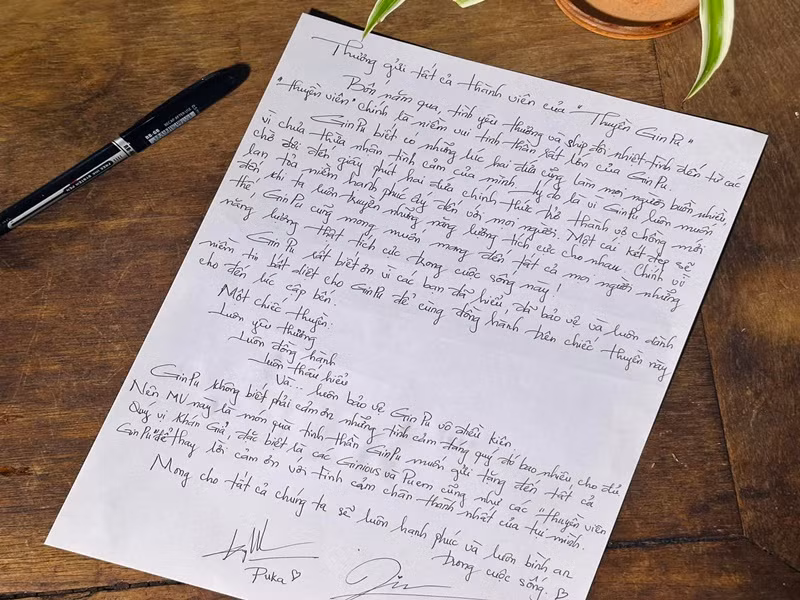 Thương gửi tất cả thành viên của "Thuyền GinPu"
Bốn năm qua, tình yêu thương và ship đôi nhiệt tình đến từ các
"thuyền viên" chính là niềm vui tinh thần rất lớn của GinPu.
GinPu biết có những lúc hai đứa cũng làm mọi người buồn nhiều
vì chưa thừa nhận tình cảm của mình. Lý do là vì GinPu luôn muốn
chờ đợi đến giây phút hai đứa chính thức trở thành vợ chồng mới
lan tỏa niềm hạnh phúc ấy đến với mọi người. Một cái kết đẹp sẽ
đến khi ta luôn truyền những năng lượng tích cực cho nhau. Chính vì
thế, GinPu cũng mong muốn mang đến tất cả mọi người những
năng lượng thật tích cực trong cuộc sống này!
GinPu rất biết ơn vì các bạn đã hiểu, đã bảo vệ và luôn dành
niềm tin bất diệt cho GinPu để cùng đồng hành trên chiếc thuyền này
cho đến lúc cập bến.
Một chiếc thuyền:
Luôn yêu thương
Luôn đồng hành
Luôn thấu hiểu
Và... luôn bảo vệ GinPu vô điều kiện
GinPu không biết phải cảm ơn những tình cảm đáng quý đó bao nhiêu cho đủ.
Nên MV này là món quà tinh thần GinPu muốn gửi tặng đến tất cả
Quý vị Khán Giả, đặc biệt là các Ginious và Puem cũng như các "thuyền viên
GinPu" để thay lời cảm ơn với tình cảm chân thành nhất của tụi mình.
Mong cho tất cả chúng ta sẽ luôn hạnh phúc và luôn bình an
trong cuộc sống. ♡
Puka ♡